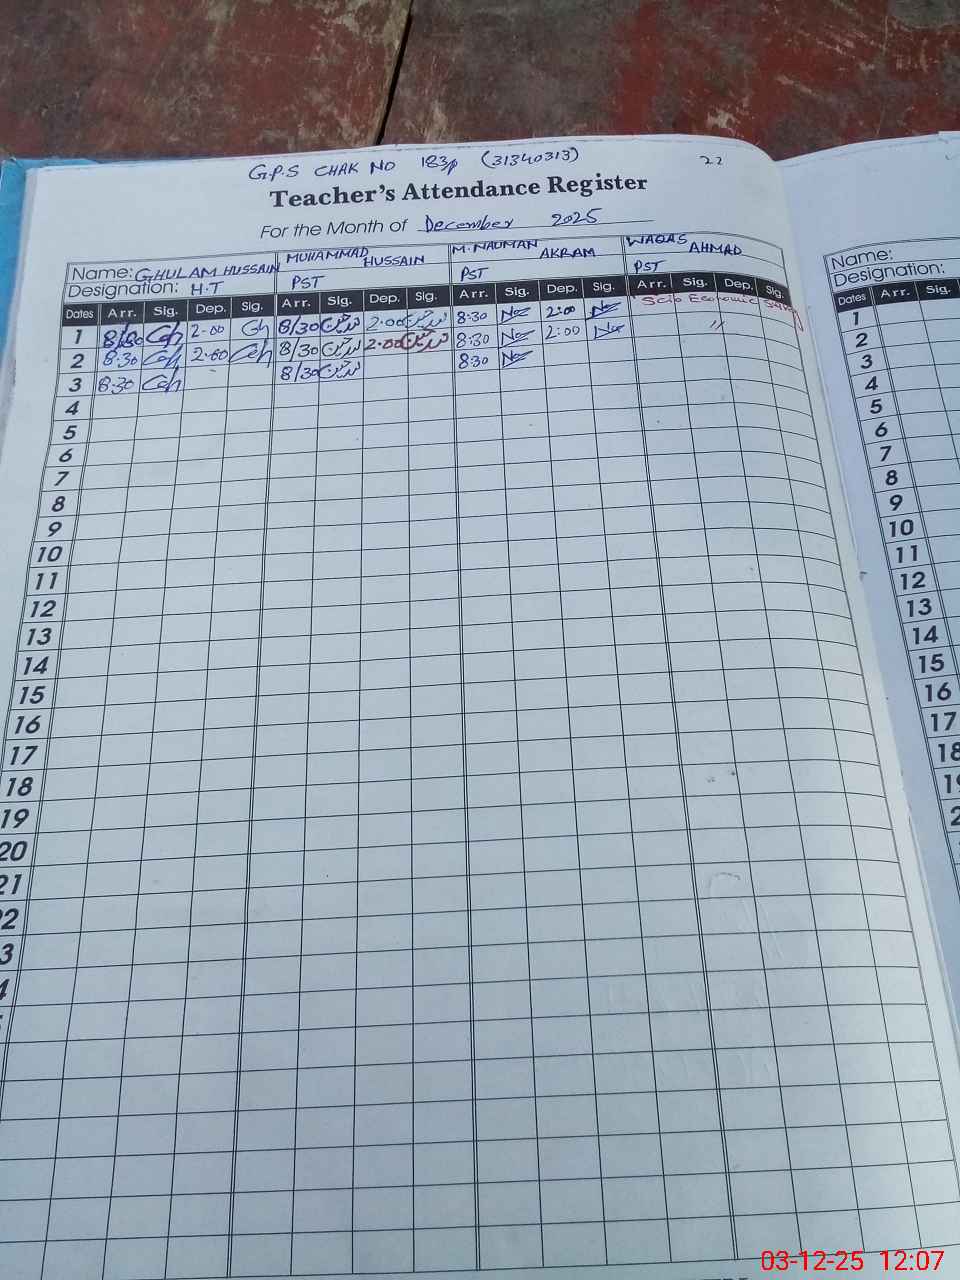 G.P.S CHAK NO 183p (31340313) 22
Teacher's Attendance Register
For the Month of December 2025
Name: GHULAM HUSSAIN MUHAMMAD HUSSAIN M. NAUMAN AKRAM WAQAS AHMAD
Designation: H.T PST PST PST
Dates Arr. Sig. Dep. Sig. Arr. Sig. Dep. Sig. Arr. Sig. Dep. Sig. Arr. Sig. Dep. Sig.
1 8/30 Gh 2.00 Gh 8/30 2.00 8:30 2:00 Scio Economic
2 8:30 Gh 2.00 Gh 8/30 2.00 8:30 2:00 "
3 8:30 Gh 8/30 8:30
4
5
6
7
8
9
10
11
12
13
14
15
16
17
18
19
20
21
22
3
4
Name:
Designation:
Dates Arr. Sig.
1
2
3
4
5
6
7
8
9
10
11
12
13
14
15
16
17
18
03-12-25 12:07